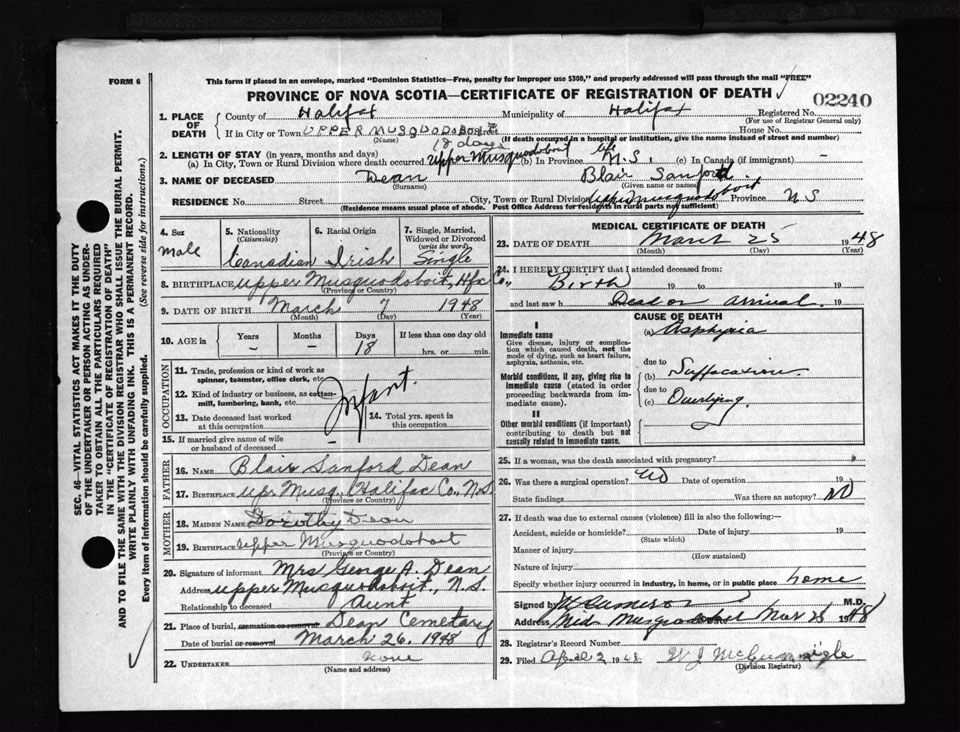 FORM 6
This form if placed in an envelope, marked "Dominion Statistics—Free, penalty for improper use $300," and properly addressed will pass through the mail "FREE"
PROVINCE OF NOVA SCOTIA—CERTIFICATE OF REGISTRATION OF DEATH
02240
1. PLACE OF DEATH
County of Halifax Municipality of Halifax Registered No.
(For use of Registrar General only)
If in City or Town UPPER MUSQUODOBOIT Street House No.
(Name) (If death occurred in a hospital or institution, give its name instead of street and number)
18 days
2. LENGTH OF STAY (in years, months and days)
(a) In City, Town or Rural Division where death occurred Upper Musquodoboit (b) In Province life N.S. (c) In Canada (if immigrant) —
3. NAME OF DECEASED Dean Blair Sanford
(Surname) (Given name or names)
RESIDENCE No. Street City, Town or Rural Division Upper Musquodoboit Province N S
(Residence means usual place of abode. Post Office Address for residents in rural parts not sufficient)
4. Sex
Male
5. Nationality
(Citizenship)
Canadian
6. Racial Origin
Irish
7. Single, Married, Widowed or Divorced
(write the word)
Single
8. BIRTHPLACE Upper Musquodoboit, Hfx Co.,
(Province or Country)
9. DATE OF BIRTH March 7 1948
(Month) (Day) (Year)
10. AGE in Years Months Days If less than one day old
— — 18 hrs. or min.
OCCUPATION
11. Trade, profession or kind of work as spinner, teamster, office clerk, etc.
12. Kind of industry or business, as cotton-mill, lumbering, bank, etc.
Infant.
13. Date deceased last worked at this occupation
14. Total yrs. spent in this occupation
15. If married give name of wife or husband of deceased —
FATHER
16. NAME Blair Sanford Dean
17. BIRTHPLACE Upr Musq., Halifax Co., N.S.
(Province or Country)
MOTHER
18. MAIDEN NAME Dorothy Dean
19. BIRTHPLACE Upper Musquodoboit
(Province or Country)
20. Signature of informant Mrs George A. Dean
Address Upper Musquodoboit, N.S.
Relationship to deceased Aunt
21. Place of burial, cremation or removal Dean Cemetary
Date of burial or removal March 26, 1948
22. UNDERTAKER None
(Name and address)
MEDICAL CERTIFICATE OF DEATH
23. DATE OF DEATH March 25 1948
(Month) (Day) (Year)
24. I HEREBY CERTIFY that I attended deceased from:
Birth 19 to 19
and last saw h Dead on arrival. 19
CAUSE OF DEATH
I
Immediate cause
Give disease, injury or complication which caused death, not the mode of dying, such as heart failure, asphyxia, asthenia, etc.
(a) Asphyxia
due to
Morbid conditions, if any, giving rise to immediate cause (stated in order proceeding backwards from immediate cause).
(b) Suffocation.
due to
(c) Overlying.
II
Other morbid conditions (if important) contributing to death but not causally related to immediate cause.
25. If a woman, was the death associated with pregnancy?
26. Was there a surgical operation? No Date of operation 19
State findings Was there an autopsy? No
27. If death was due to external causes (violence) fill in also the following:—
Accident, suicide or homicide? Date of injury 19
(State which)
Manner of injury
(How sustained)
Nature of injury
Specify whether injury occurred in industry, in home, or in public place home
Signed by Cameron M.D.
Address Mid Musquodoboit Mar 25 1948
28. Registrar's Record Number
29. Filed April 2 1948 W J McGunnigle
(Division Registrar)
SEC. 46—VITAL STATISTICS ACT MAKES IT THE DUTY
OF THE UNDERTAKER OR PERSON ACTING AS UNDERTAKER TO OBTAIN ALL THE PARTICULARS REQUIRED
IN THE "CERTIFICATE OF REGISTRATION OF DEATH"
AND TO FILE THE SAME WITH THE DIVISION REGISTRAR WHO SHALL ISSUE THE BURIAL PERMIT.
WRITE PLAINLY WITH UNFADING INK. THIS IS A PERMANENT RECORD.
Every item of information should be carefully supplied. (See reverse side for instructions.)